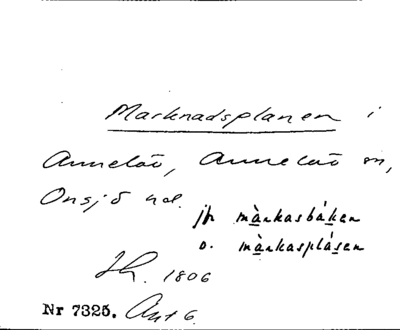 Marknadsplanen i
Annelöv, Annelöv sn,
Onsjö hd.
jfr màrkasbáken
o. màrkasplásen
Lh. 1806
Nr 7325. Akt 6.